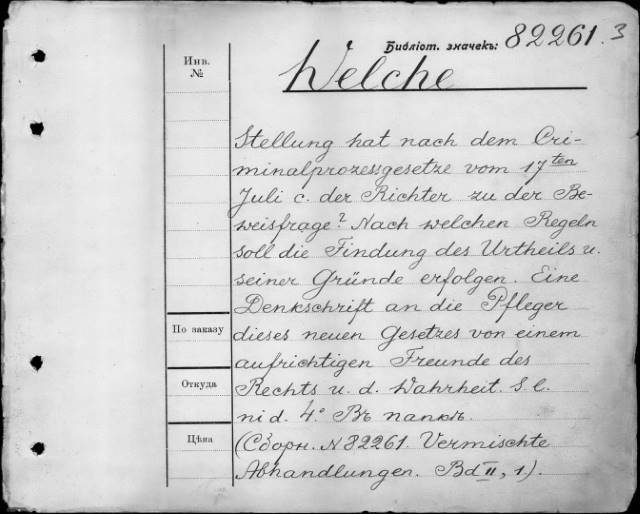 Библіот. значекъ: 82261.3
Инв. №
Welche
Stellung hat nach dem Cri-
minalprozessgesetze vom 17ten
Juli c. der Richter zu der Be-
weisfrage? Nach welchen Regeln
soll die Findung des Urtheils u.
seiner Gründe erfolgen. Eine
Denkschrift an die Pfleger
dieses neuen Gesetzes von einem
aufrichtigen Freunde des
Rechts u. d. Wahrheit. S. l.
ni d. 4º. Въ папкѣ.
(Сборн. N 82261. Vermischte
Abhandlungen. Bd II, 1).
По заказу
Откуда
Цѣна